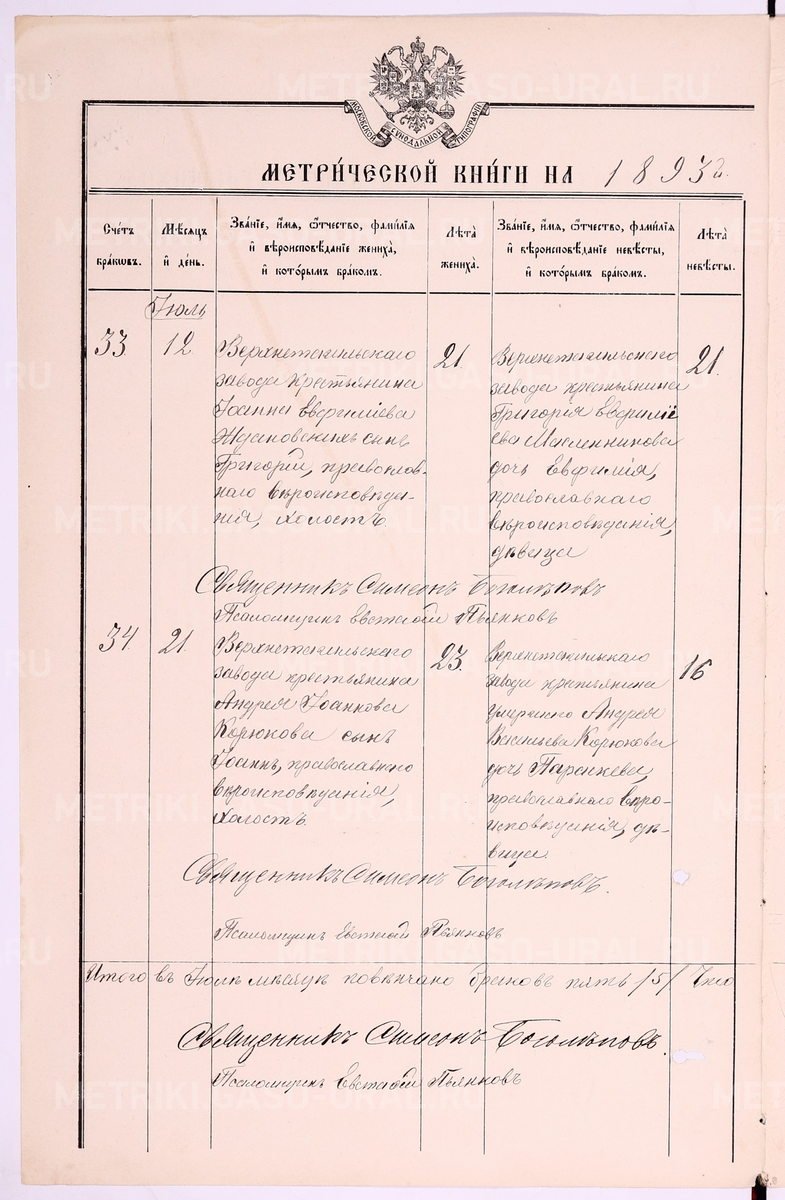 МОСКОВСКОЙ СѴНОДАЛЬНОЙ ТИПОГРАФІИ
МЕТРИ́ЧЕСКОЙ КНИ́ГИ НА 1893 г.
Сче́тъ бра́кѡвъ.
Мѣ́сѧцъ и҆ де́нь.
Зва́нїе, и҆́мѧ, ѻ҆́тчество, фами́лїѧ
и҆ вѣроисповѣ́данїе жениха̀,
и҆ кото́рымъ бра́комъ.
Лѣ́та жениха̀.
Зва́нїе, и҆́мѧ, ѻ҆́тчество, фами́лїѧ
и҆ вѣроисповѣ́данїе невѣ́сты,
и҆ кото́рымъ бра́комъ.
Лѣ́та невѣ́сты.
Іюль
33
12
Верхнетагильскаго
завода крестьянина
Іоанна Евфиміева
сынъ
Григорій, православ-
наго вѣроисповѣда-
нія, холостъ.
21.
Верхнетагильскаго
завода крестьянина
Григорія Евфимі
ева Масленникова
дочь Евфимія,
православнаго
вѣроисповѣданія,
дѣвица
21.
Священникъ Симеонъ Боголѣповъ
Псаломщикъ Евстафій Пьянковъ
34
21.
Верхнетагильскаго
завода крестьянина
Андрея Іоаннова
Корюкова сынъ
Іоаннъ, православнаго
вѣроисповѣданія,
холостъ.
23.
Верхнетагильскаго
завода крестьянина
умершаго Андрея
Васильева Корюкова
дочь Параскева,
православнаго вѣро-
исповѣданія, дѣ-
вица.
16
Священникъ Симеонъ Боголѣповъ.
Псаломщикъ Евстафій Пьянковъ
Итого въ Іюлѣ мѣсяцѣ повѣнчано браковъ пять /5/
Священникъ Симеонъ Боголѣповъ.
Псаломщикъ Евстафій Пьянковъ
METRIKI.GASO-URAL.RU